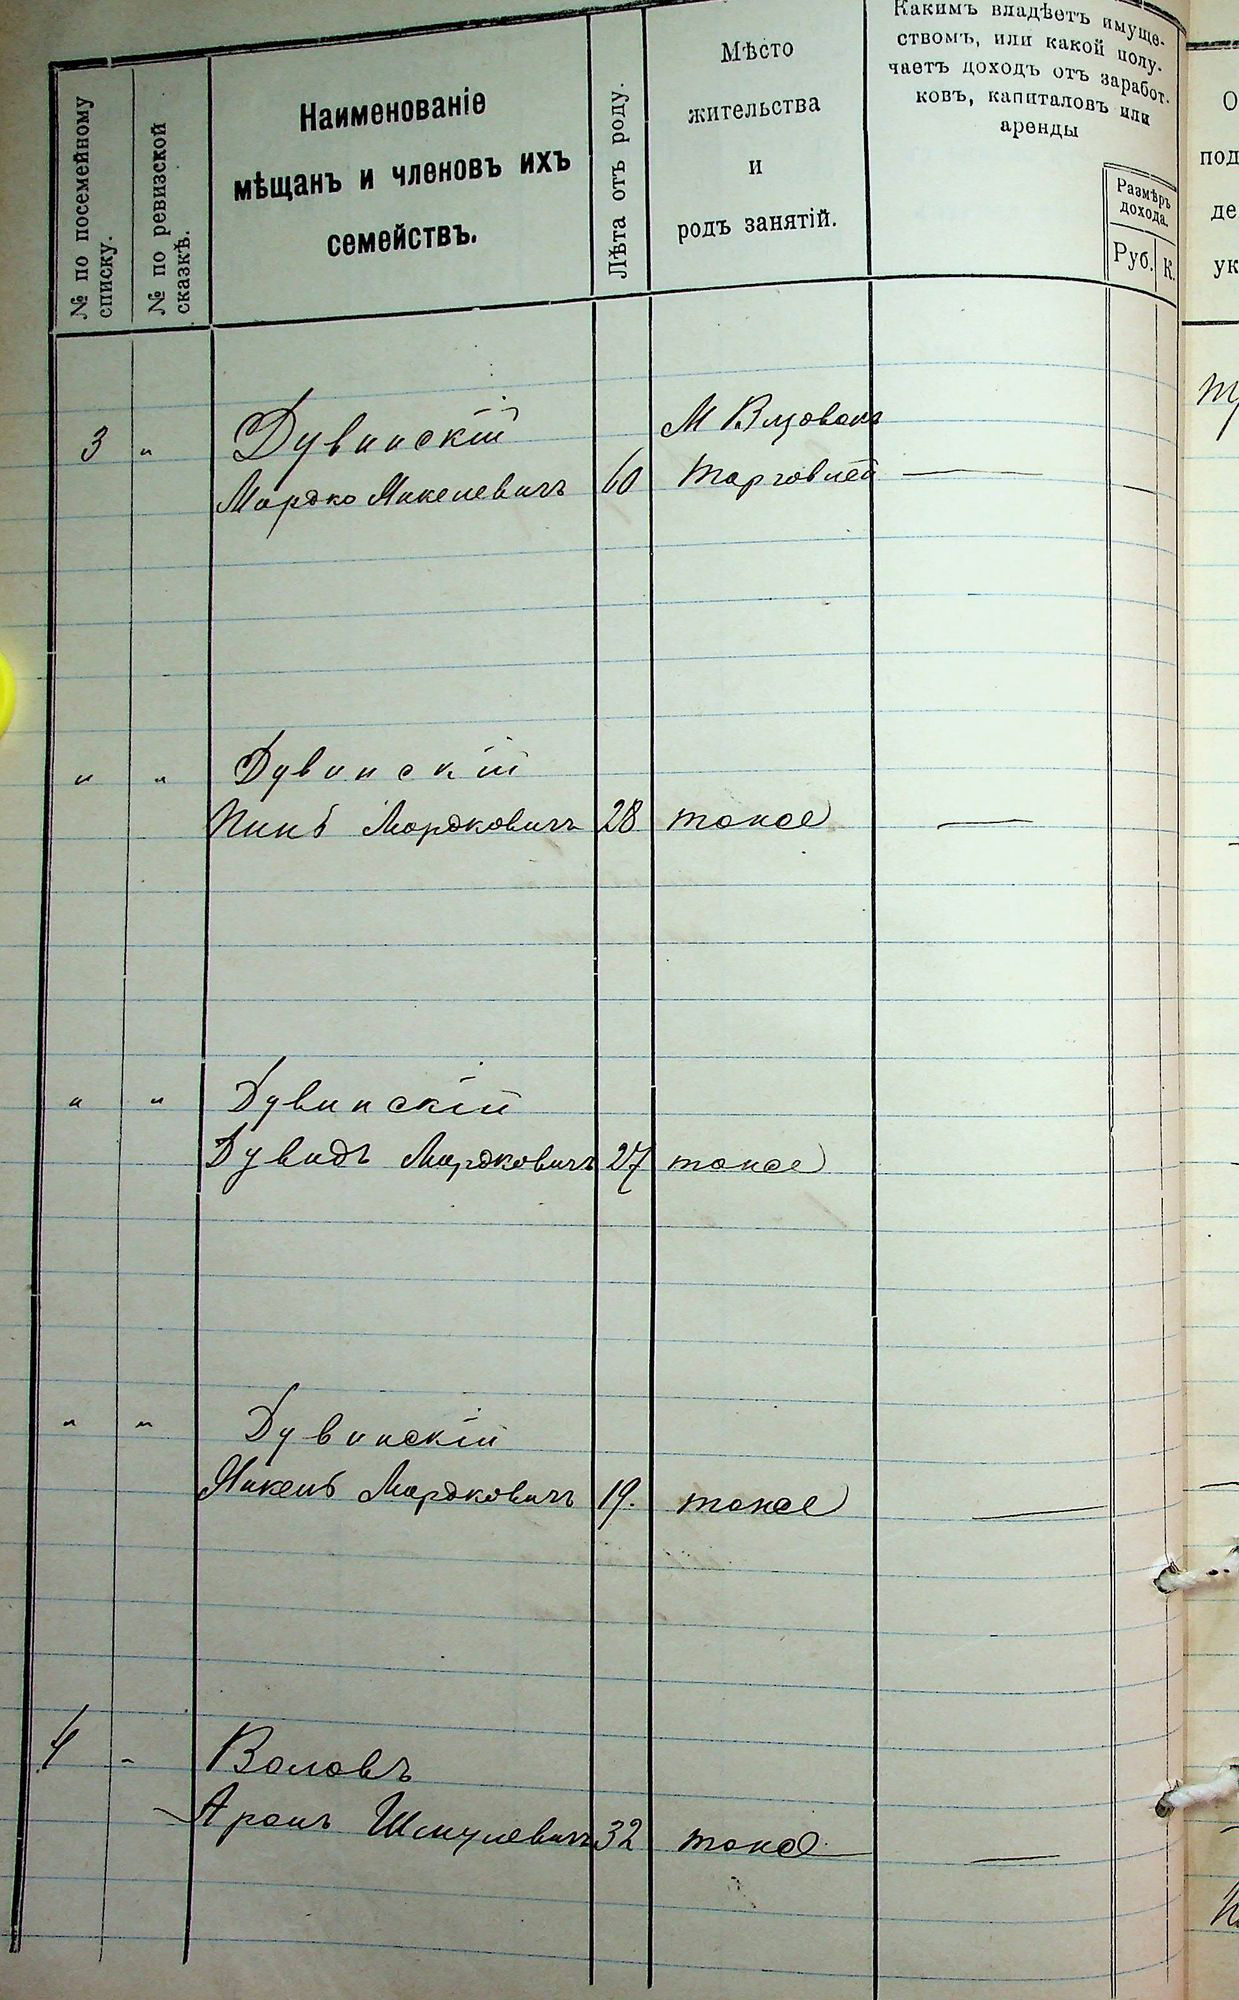 № по посемейному
списку.
№ по ревизской
сказкѣ.
Наименованіе
мѣщанъ и членовъ ихъ
семействъ.
Лѣта отъ роду.
Мѣсто
жительства
и
родъ занятій.
Какимъ владѣетъ имуще-
ствомъ, или какой полу-
чаетъ доходъ отъ заработ-
ковъ, капиталовъ или
аренды
Размѣръ
дохода.
Руб. К.
3 " Дувинскій М
Мордко 60 торговлей —
" " Дувинскій
Мордковичъ 28 тоже —
" " Дувинскій
Дувидъ Мордковичъ 27 тоже
" " Дувинскій
Мордковичъ 19. тоже —
4 - Воловъ
Аронъ Шмулевичъ 32 тоже —